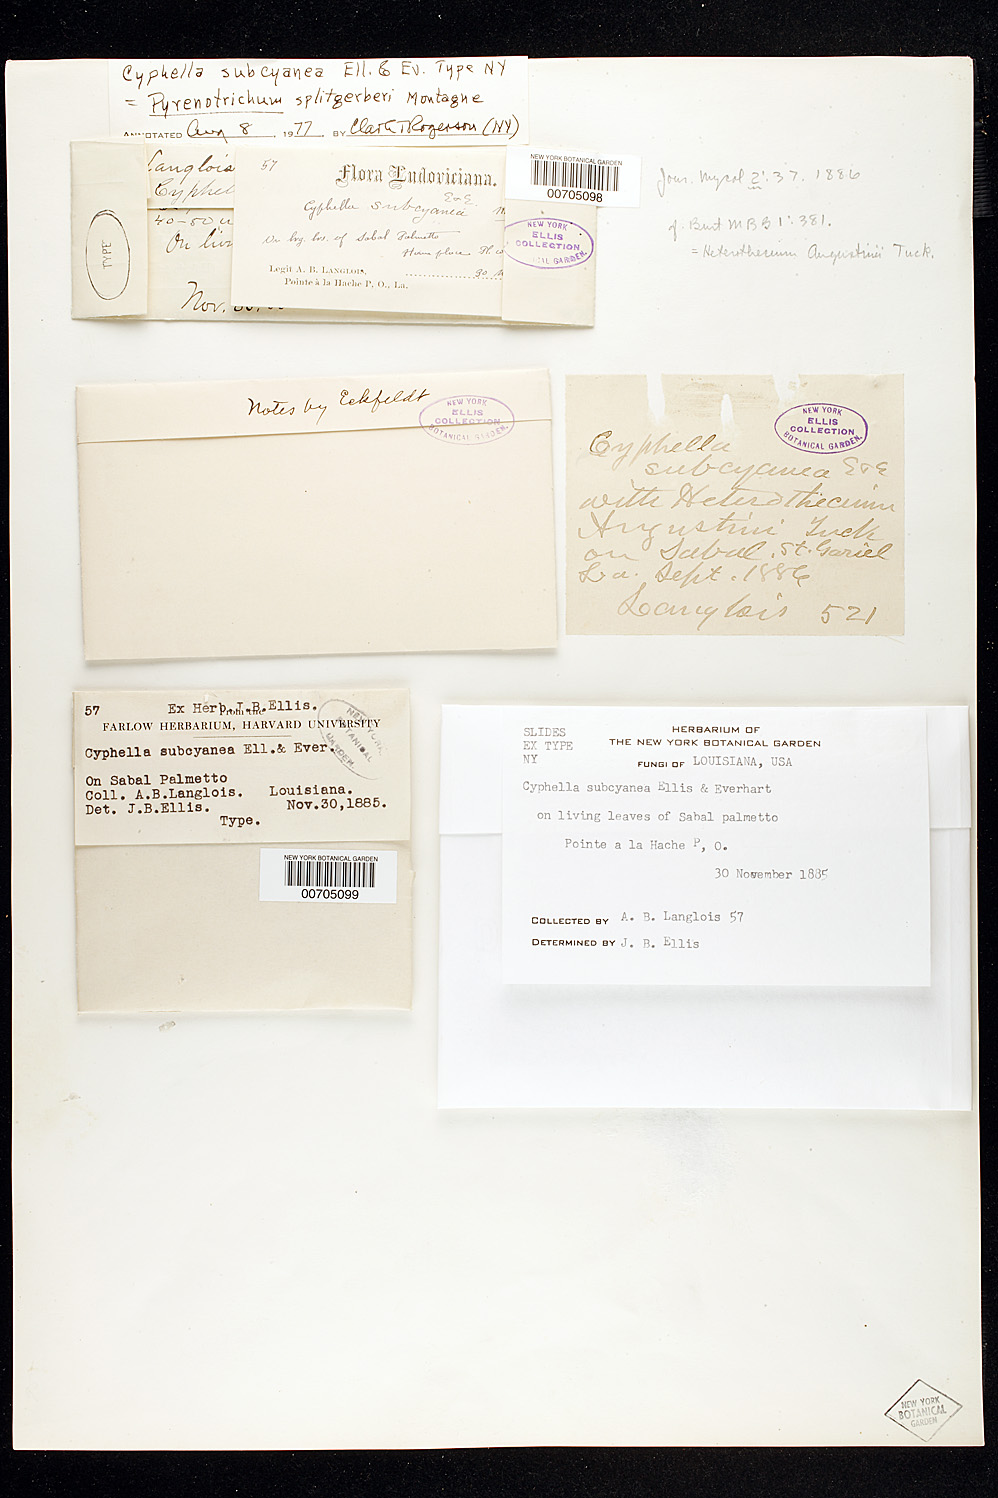 Cyphella subcyanea Ell. & Ev. Type NY
= Pyrenotrichum splitgerberi Montagne
ANNOTATED Aug 8 1977 BY Clark T Rogerson (NY)
Langlois
Cyphel
40-50 u
On livi
Nov.
TYPE
57
Flora Ludoviciana.
Cyphella subcyanea E&E
On lvg. lvs. of Sabal Palmetto
Home place
Legit A. B. LANGLOIS,
Pointe à la Hache P. O., La.
30
NEW YORK BOTANICAL GARDEN
00705098
NEW YORK
ELLIS
COLLECTION
BOTANICAL GARDEN.
Jour. Mycol 2:37. 1886
cf. Burt MBG 1:381.
= Heterothecium Augustinii Tuck.
Notes by Eckfeldt
NEW YORK
ELLIS
COLLECTION
BOTANICAL GARDEN.
NEW YORK
ELLIS
COLLECTION
BOTANICAL GARDEN.
Cyphella
subcyanea E&E
with Heterothecium
Augustini Tuck
on Sabal. St. Gariel
La. Sept. 1886
Langlois 521
57
Ex Herb. J.B.Ellis.
From the
FARLOW HERBARIUM, HARVARD UNIVERSITY
Cyphella subcyanea Ell.& Ever.
On Sabal Palmetto
Coll. A.B.Langlois. Louisiana.
Det. J.B.Ellis. Nov.30,1885.
Type.
NEW YORK
BOTANICAL
GARDEN
NEW YORK BOTANICAL GARDEN
00705099
SLIDES
EX TYPE
NY
HERBARIUM OF
THE NEW YORK BOTANICAL GARDEN
FUNGI OF LOUISIANA, USA
Cyphella subcyanea Ellis & Everhart
on living leaves of Sabal palmetto
Pointe a la Hache P, O.
30 November 1885
COLLECTED BY A. B. Langlois 57
DETERMINED BY J. B. Ellis
NEW YORK
BOTANICAL
GARDEN